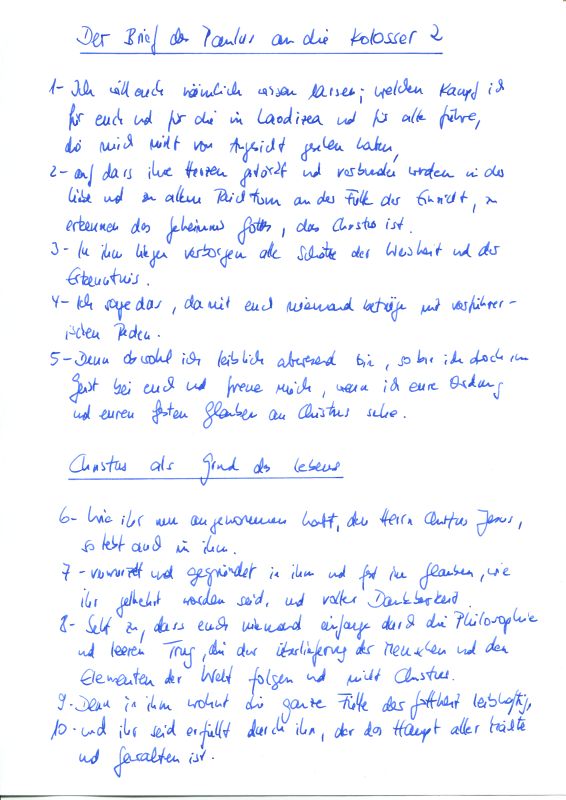 Der Brief des Paulus an die Kolosser 2
1- Ich will euch nämlich wissen lassen, welchen Kampf ich
für euch und für die in Laodizea und für alle führe,
die mich nicht von Angesicht gesehen haben,
2- auf dass ihre Herzen gestärkt und verbunden werden in der
Liebe und zu allem Reichtum an der Fülle der Einsicht, zu
erkennen das Geheimnis Gottes, das Christus ist.
3- In ihm liegen verborgen alle Schätze der Weisheit und der
Erkenntnis.
4- Ich sage das, damit euch niemand betrüge mit verführer-
ischen Reden.
5- Denn obwohl ich leiblich abwesend bin, so bin ich doch im
Geist bei euch und freue mich, wenn ich eure Ordnung
und euren festen Glauben an Christus sehe.
Christus als Grund des Lebens
6- Wie ihr nun angenommen habt, den Herrn Christus Jesus,
so lebt auch in ihm.
7- verwurzelt und gegründet in ihm und fest im Glauben, wie
ihr gelehrt worden seid, und voller Dankbarkeit.
8- Seht zu, dass euch niemand einfange durch die Philosophie
und leeren Trug, die der Überlieferung der Menschen und den
Elementen der Welt folgen und nicht Christus.
9- Denn in ihm wohnt die ganze Fülle der Gottheit leibhaftig,
10- und ihr seid erfüllt durch ihn, der das Haupt aller Mächte
und Gewalten ist.